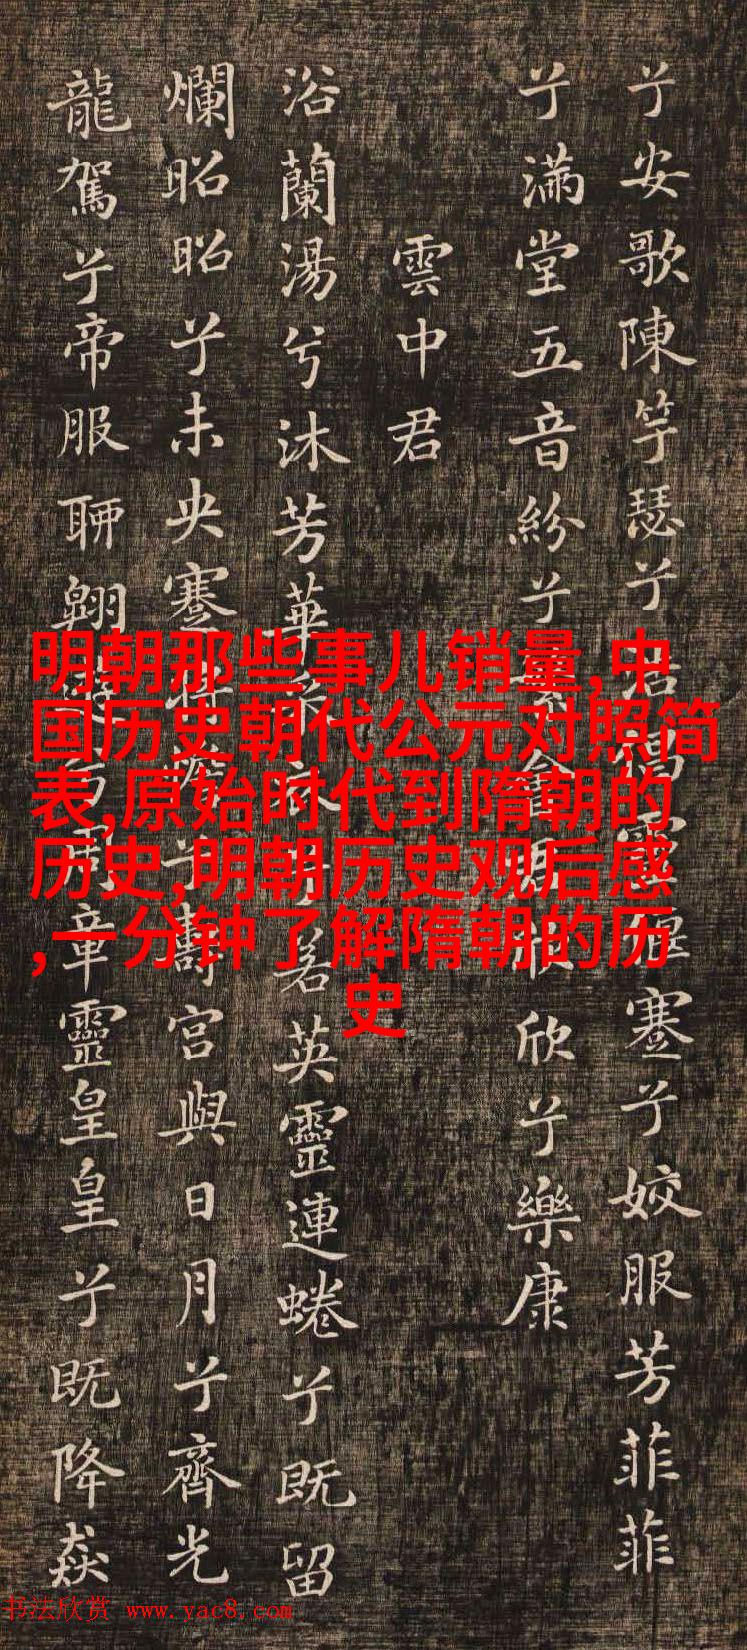 兮安歌陳竽瑟兮浩倡靈偃蹇兮姣服芳菲菲
兮滿堂五音紛兮會欣兮樂康
雲中君
浴蘭湯兮沐芳華采衣兮若英靈連蜷兮既留
爛昭昭兮未央蹇將憺兮壽宮與日月兮齊光
龍駕兮帝服聊翱遊兮周章靈皇皇兮既降猋
明朝那些事儿销量,中
国历史朝代公元对照简
表,原始时代到隋朝的
历史,明朝历史观后感
,一分钟了解隋朝的历
史
书法欣赏 www.yac8.com